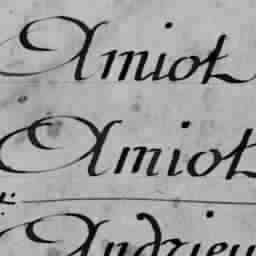 Amiot
Amiot
Andrieu